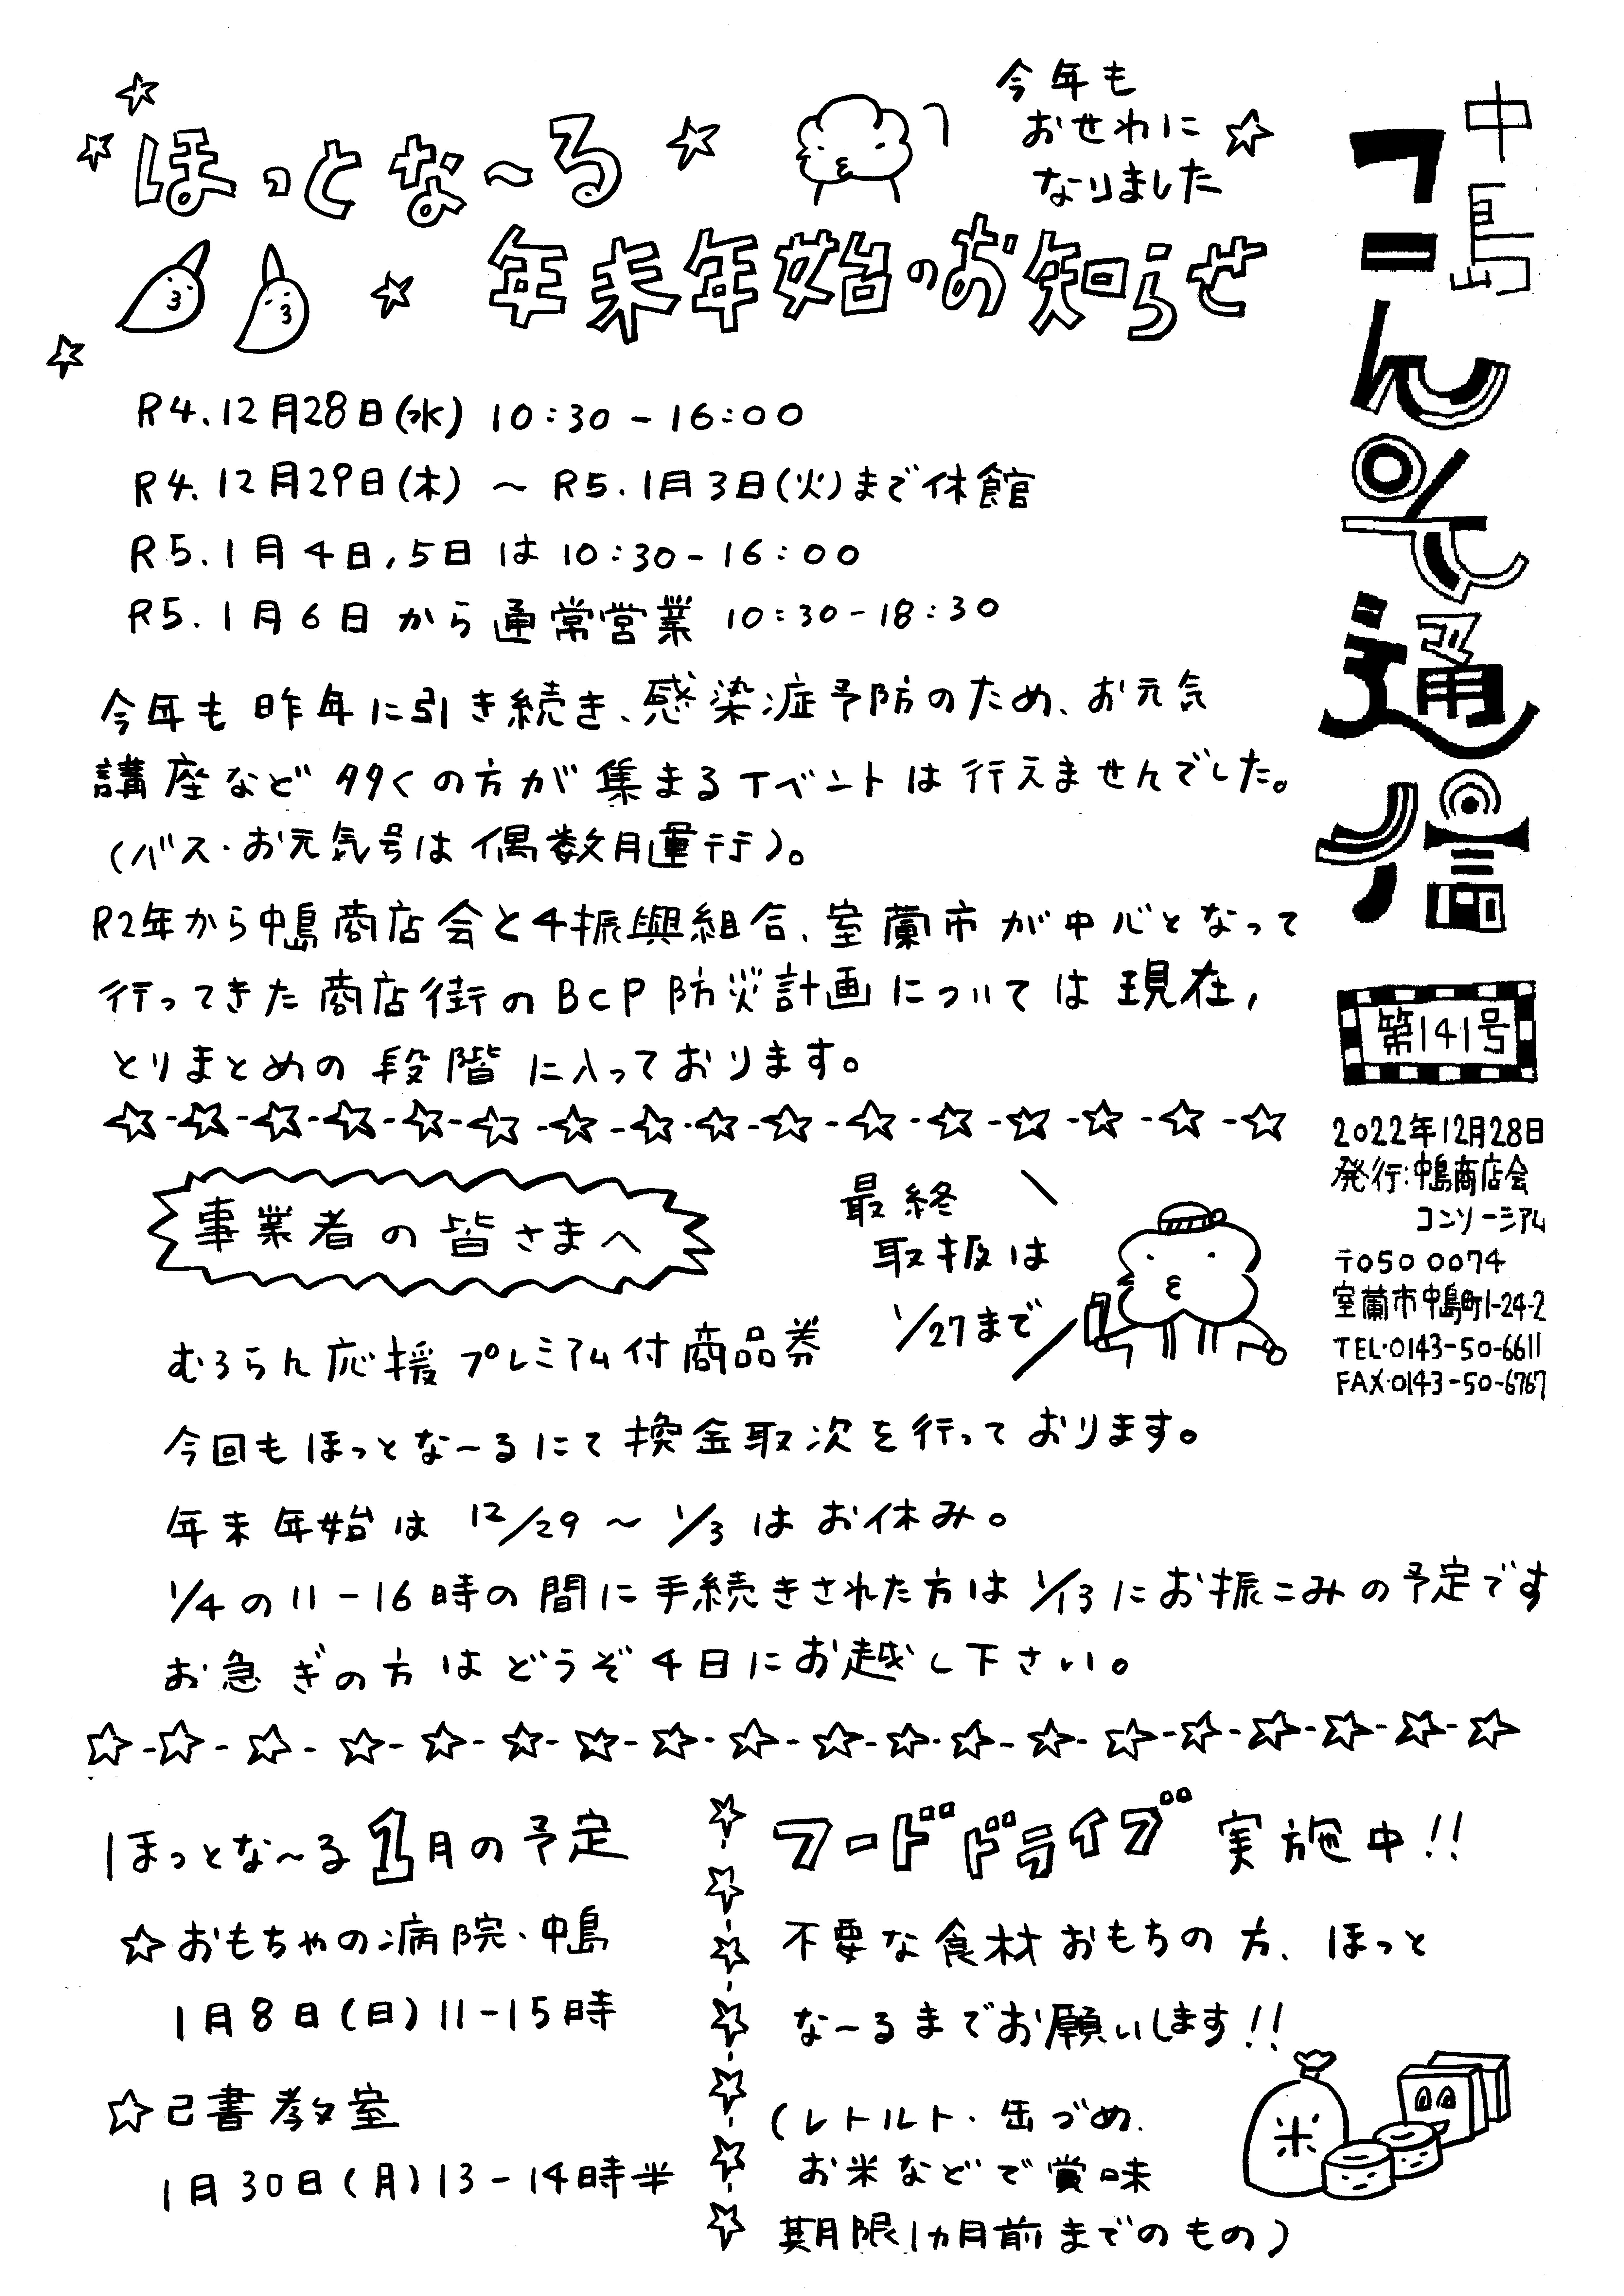 中島
コーんそ通信
第141号
2022年12月28日
発行:中島商店会
コンソーシアム
〒050 0074
室蘭市中島町1-24-2
TEL・0143-50-6611
FAX・0143-50-6767
ほっとな〜る
今年も
おせわに
なりました
年末年始のお知らせ
R4.12月28日(水) 10:30-16:00
R4.12月29日(木) 〜 R5.1月3日(火)まで休館
R5.1月4日,5日は10:30-16:00
R5.1月6日から通常営業 10:30-18:30
今年も昨年に引き続き、感染症予防のため、お元気
講座など多くの方が集まるイベントは行えませんでした。
(バス・お元気号は偶数月運行)。
R2年から中島商店会と4振興組合、室蘭市が中心となって
行ってきた商店街のBCP防災計画については現在,
とりまとめの段階に入っております。
事業者の皆さまへ
最終
取扱は
1/27まで
むろらん応援プレミアム付商品券
今回もほっとな〜るにて換金取次を行っております。
年末年始は 12/29 〜 1/3 はお休み。
1/4の11-16時の間に手続きされた方は1/13にお振こみの予定です
お急ぎの方はどうぞ4日にお越し下さい。
ほっとな〜る1月の予定
☆おもちゃの病院・中島
1月8日(日)11-15時
☆己書教室
1月30日(月)13-14時半
フードドライブ実施中!!
不要な食材おもちの方、ほっと
な〜るまでお願いします!!
(レトルト・缶づめ、
お米などで賞味
期限1ヵ月前までのもの)
米